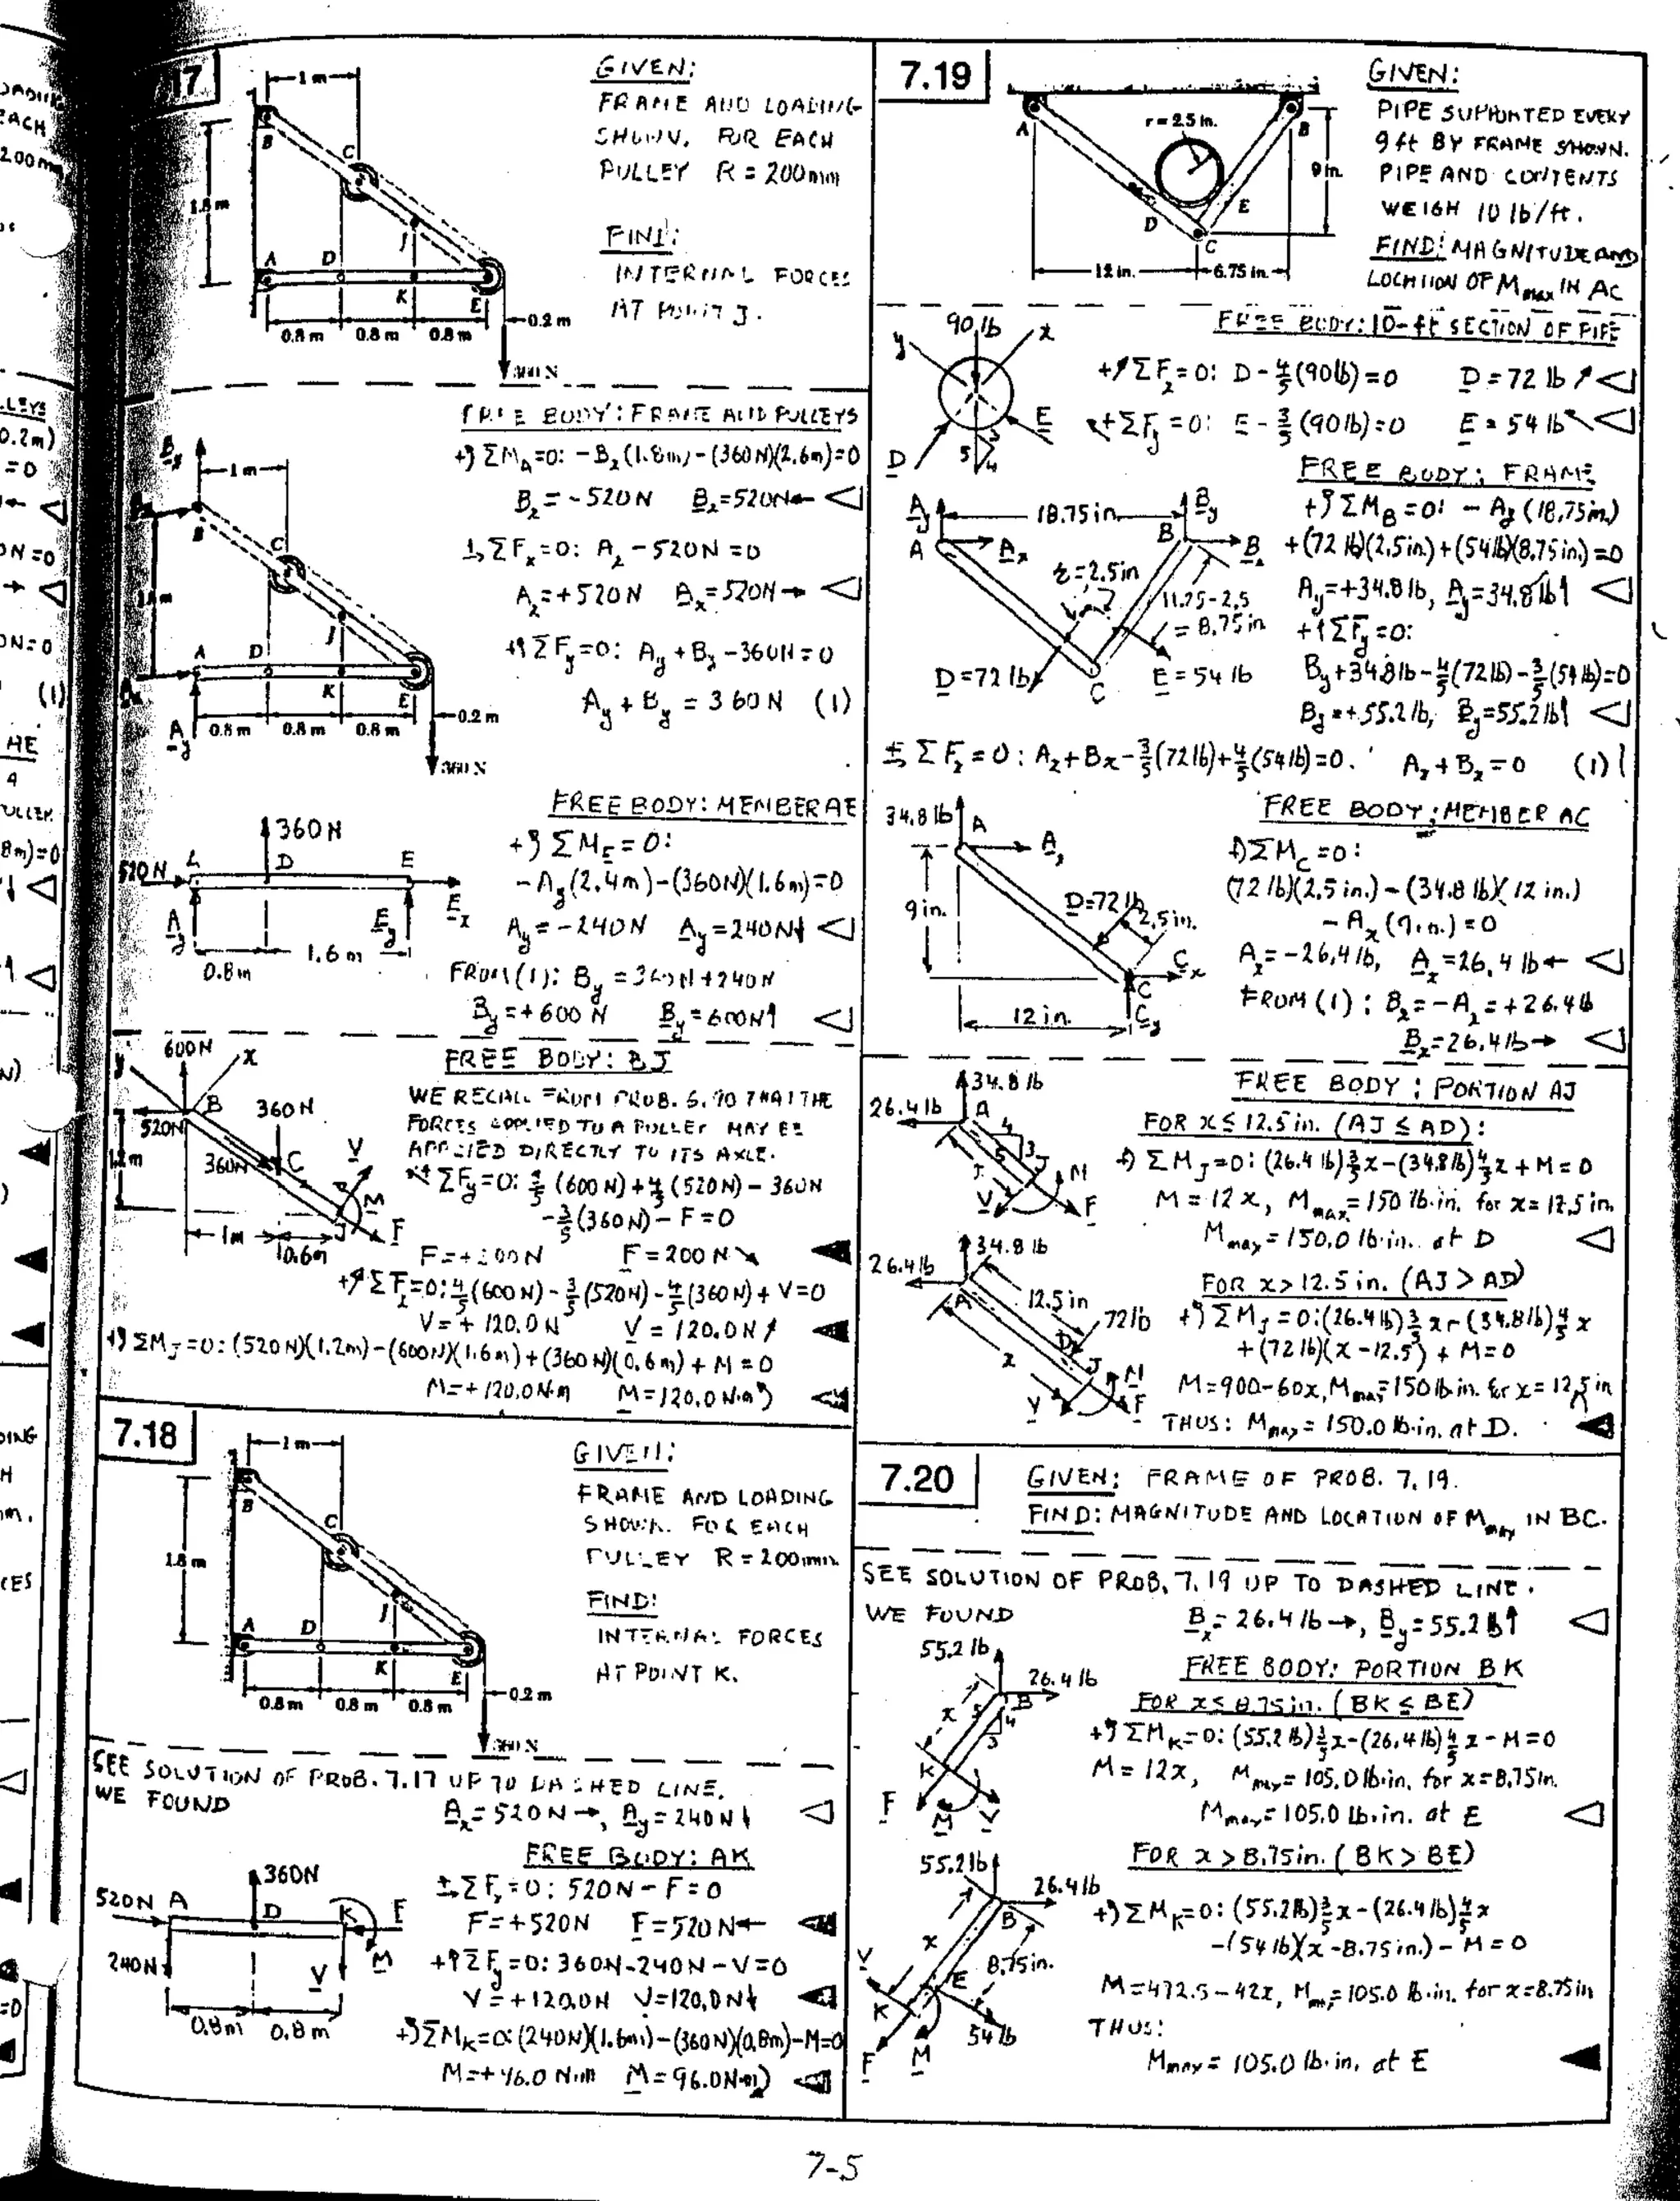 17
1 m
B
C
1.8 m
J
A
D
K
E
0.8 m
0.8 m
0.8 m
0.2 m
360 N
GIVEN:
FRAME AND LOADING
SHOWN. FOR EACH
PULLEY R = 200mm
FIND:
INTERNAL FORCES
AT POINT J.
FREE BODY: FRAME AND PULLEYS
+↺ΣM_A=0: -B_x(1.8m)-(360N)(2.6m)=0
B_x = -520N B_x=520N← ◁
±→ΣF_x=0: A_x -520N =0
A_x=+520N A_x=520N→ ◁
+↑ΣF_y=0: A_y+B_y-360N=0
A_y + B_y = 360N (1)
B_y
1 m
B
C
J
A
D
K
E
A_y
0.8 m
0.8 m
0.8 m
0.2 m
360 N
FREE BODY: MEMBER AE
+↺ΣM_E=0:
-A_y(2.4m)-(360N)(1.6m)=0
A_y=-240N A_y=240N↓ ◁
FROM (1): B_y = 360N+240N
B_y=+600 N B_y=600N↑ ◁
360N
520N
D
E
A_y
E_y
E_x
0.8m
1.6m
FREE BODY: BJ
WE RECALL FROM PROB. 6.90 THAT THE
FORCES APPLIED TO A PULLEY MAY BE
APPLIED DIRECTLY TO ITS AXLE.
ΣF_y=0: 3/5(600N)+4/5(520N)-360N
-3/5(360N)-F=0
F=+200N F=200N↘ ◀
+↗ΣF_x=0: 4/5(600N)-3/5(520N)-4/5(360N)+V=0
V=+120.0N V=120.0N↗ ◀
+↺ΣM_J=0: (520N)(1.2m)-(600N)(1.6m)+(360N)(0.6m)+M=0
M=+120.0N·m M=120.0N·m↺ ◀
y
600N
x
B
360N
520N
360N
C
V
1.2m
M
J
F
1m
0.6m
7.18
1 m
B
C
1.8 m
J
A
D
K
E
0.8 m
0.8 m
0.8 m
0.2 m
360 N
GIVEN:
FRAME AND LOADING
SHOWN. FOR EACH
PULLEY R = 200mm.
FIND:
INTERNAL FORCES
AT POINT K.
SEE SOLUTION OF PROB. 7.17 UP TO DASHED LINE.
WE FOUND
A_x=520N→, A_y=240N↓ ◁
FREE BODY: AK
±→ΣF_x=0: 520N-F=0
F=+520N F=520N← ◀
+↑ΣF_y=0: 360N-240N-V=0
V=+120.0N V=120.0N↓ ◀
+↺ΣM_K=0: (240N)(1.6m)-(360N)(0.8m)-M=0
M=+96.0 N·m M=96.0N·m↻ ◀
520N
A
360N
D
K
F
240N
V
M
0.8m
0.8m
7.19
A
r = 2.5 in.
B
9 in.
D
E
C
12 in.
6.75 in.
GIVEN:
PIPE SUPPORTED EVERY
9 ft BY FRAME SHOWN.
PIPE AND CONTENTS
WEIGH 10 lb/ft.
FIND: MAGNITUDE AND
LOCATION OF M_max IN AC
FREE BODY: 10-ft SECTION OF PIPE
90 lb
y
x
E
D
5
3
4
+↗ΣF_x=0: D-4/5(90lb)=0 D=72 lb↗ ◁
ΣF_y=0: E-3/5(90lb)=0 E=54 lb↖ ◁
FREE BODY: FRAME
+↺ΣM_B=0: -A_y(18.75in.)
+(72 lb)(2.5in.)+(54lb)(8.75in.)=0
A_y=+34.8 lb, A_y=34.8lb↑ ◁
+↑ΣF_y=0:
B_y+34.8lb-4/5(72lb)-3/5(54lb)=0
B_y=+55.2 lb, B_y=55.2lb↑ ◁
±→ΣF_x=0: A_x+B_x-3/5(72lb)+4/5(54lb)=0. A_x+B_x=0 (1)
A_y
18.75in.
B_y
A
A_x
B
B_x
r=2.5in
11.25-2.5
= 8.75in
D=72 lb
C
E=54 lb
FREE BODY: MEMBER AC
+↺ΣM_C=0:
(72 lb)(2.5in.)-(34.8 lb)(12 in.)
-A_x(9in.)=0
A_x=-26.4lb, A_x=26.4 lb← ◁
FROM (1): B_x=-A_x=+26.4lb
B_x=26.4lb→ ◁
34.8 lb
A
A_x
9in.
D=72lb
2.5in.
C_x
C
C_y
12 in.
FREE BODY: PORTION AJ
FOR x≤12.5in. (AJ≤AD):
+↺ΣM_J=0: (26.4 lb)3/5x-(34.8lb)4/5x+M=0
M=12x, M_max=150 lb·in. for x=12.5in.
M_max=150.0 lb·in. at D ◁
FOR x>12.5in. (AJ>AD)
+↺ΣM_J=0: (26.4lb)3/5x-(34.8lb)4/5x
+(72lb)(x-12.5)+M=0
M=900-60x, M_max=150lb·in. for x=12.5in
THUS: M_max=150.0 lb·in. at D. ◀
34.8 lb
26.4 lb
A
4
3
5
J
M
V
F
34.8 lb
26.4lb
A
12.5in
72lb
D
J
x
M
V
F
7.20
GIVEN: FRAME OF PROB. 7.19.
FIND: MAGNITUDE AND LOCATION OF M_max IN BC.
SEE SOLUTION OF PROB. 7.19 UP TO DASHED LINE.
WE FOUND B_x=26.4 lb→, B_y=55.2 lb↑ ◁
FREE BODY: PORTION BK
FOR x≤8.75in. (BK≤BE)
+↺ΣM_K=0: (55.2 lb)3/5x-(26.4lb)4/5x-M=0
M=12x, M_max=105.0lb·in. for x=8.75in.
M_max=105.0 lb·in. at E ◁
FOR x>8.75in. (BK>BE)
+↺ΣM_K=0: (55.2lb)3/5x-(26.4lb)4/5x
-(54lb)(x-8.75in.)-M=0
M=472.5-42x, M_max=105.0 lb·in. for x=8.75in
THUS:
M_max=105.0 lb·in. at E ◀
55.2 lb
26.4 lb
B
x
5
4
3
K
F
M
V
55.2lb
26.4lb
B
x
V
8.75in.
E
K
54lb
F
M
7-5